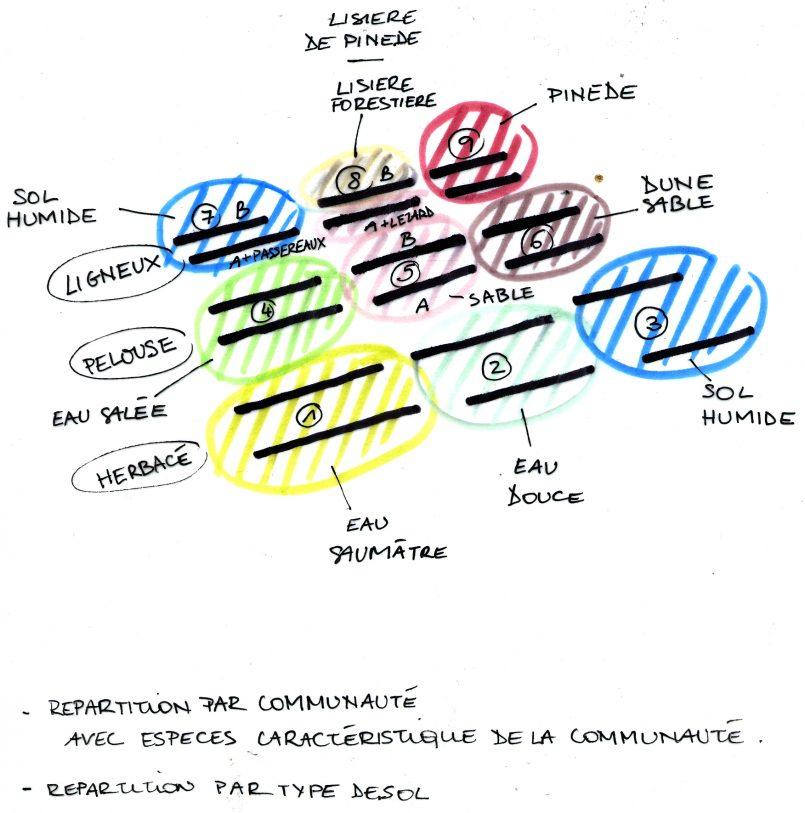 LISIERE
DE PINEDE
LISIERE
FORESTIERE
PINEDE
9
8 B
A+LEZARD
SOL
HUMIDE
7 B
A+PASSEREAUX
DUNE
SABLE
6
B
5
A - SABLE
LIGNEUX
4
3
PELOUSE
2
SOL
HUMIDE
EAU SALÉE
1
HERBACÉ
EAU
DOUCE
EAU
SAUMÂTRE
- REPARTITION PAR COMMUNAUTÉ
AVEC ESPECES CARACTÉRISTIQUE DE LA COMMUNAUTÉ.
- REPARTITION PAR TYPE DE SOL